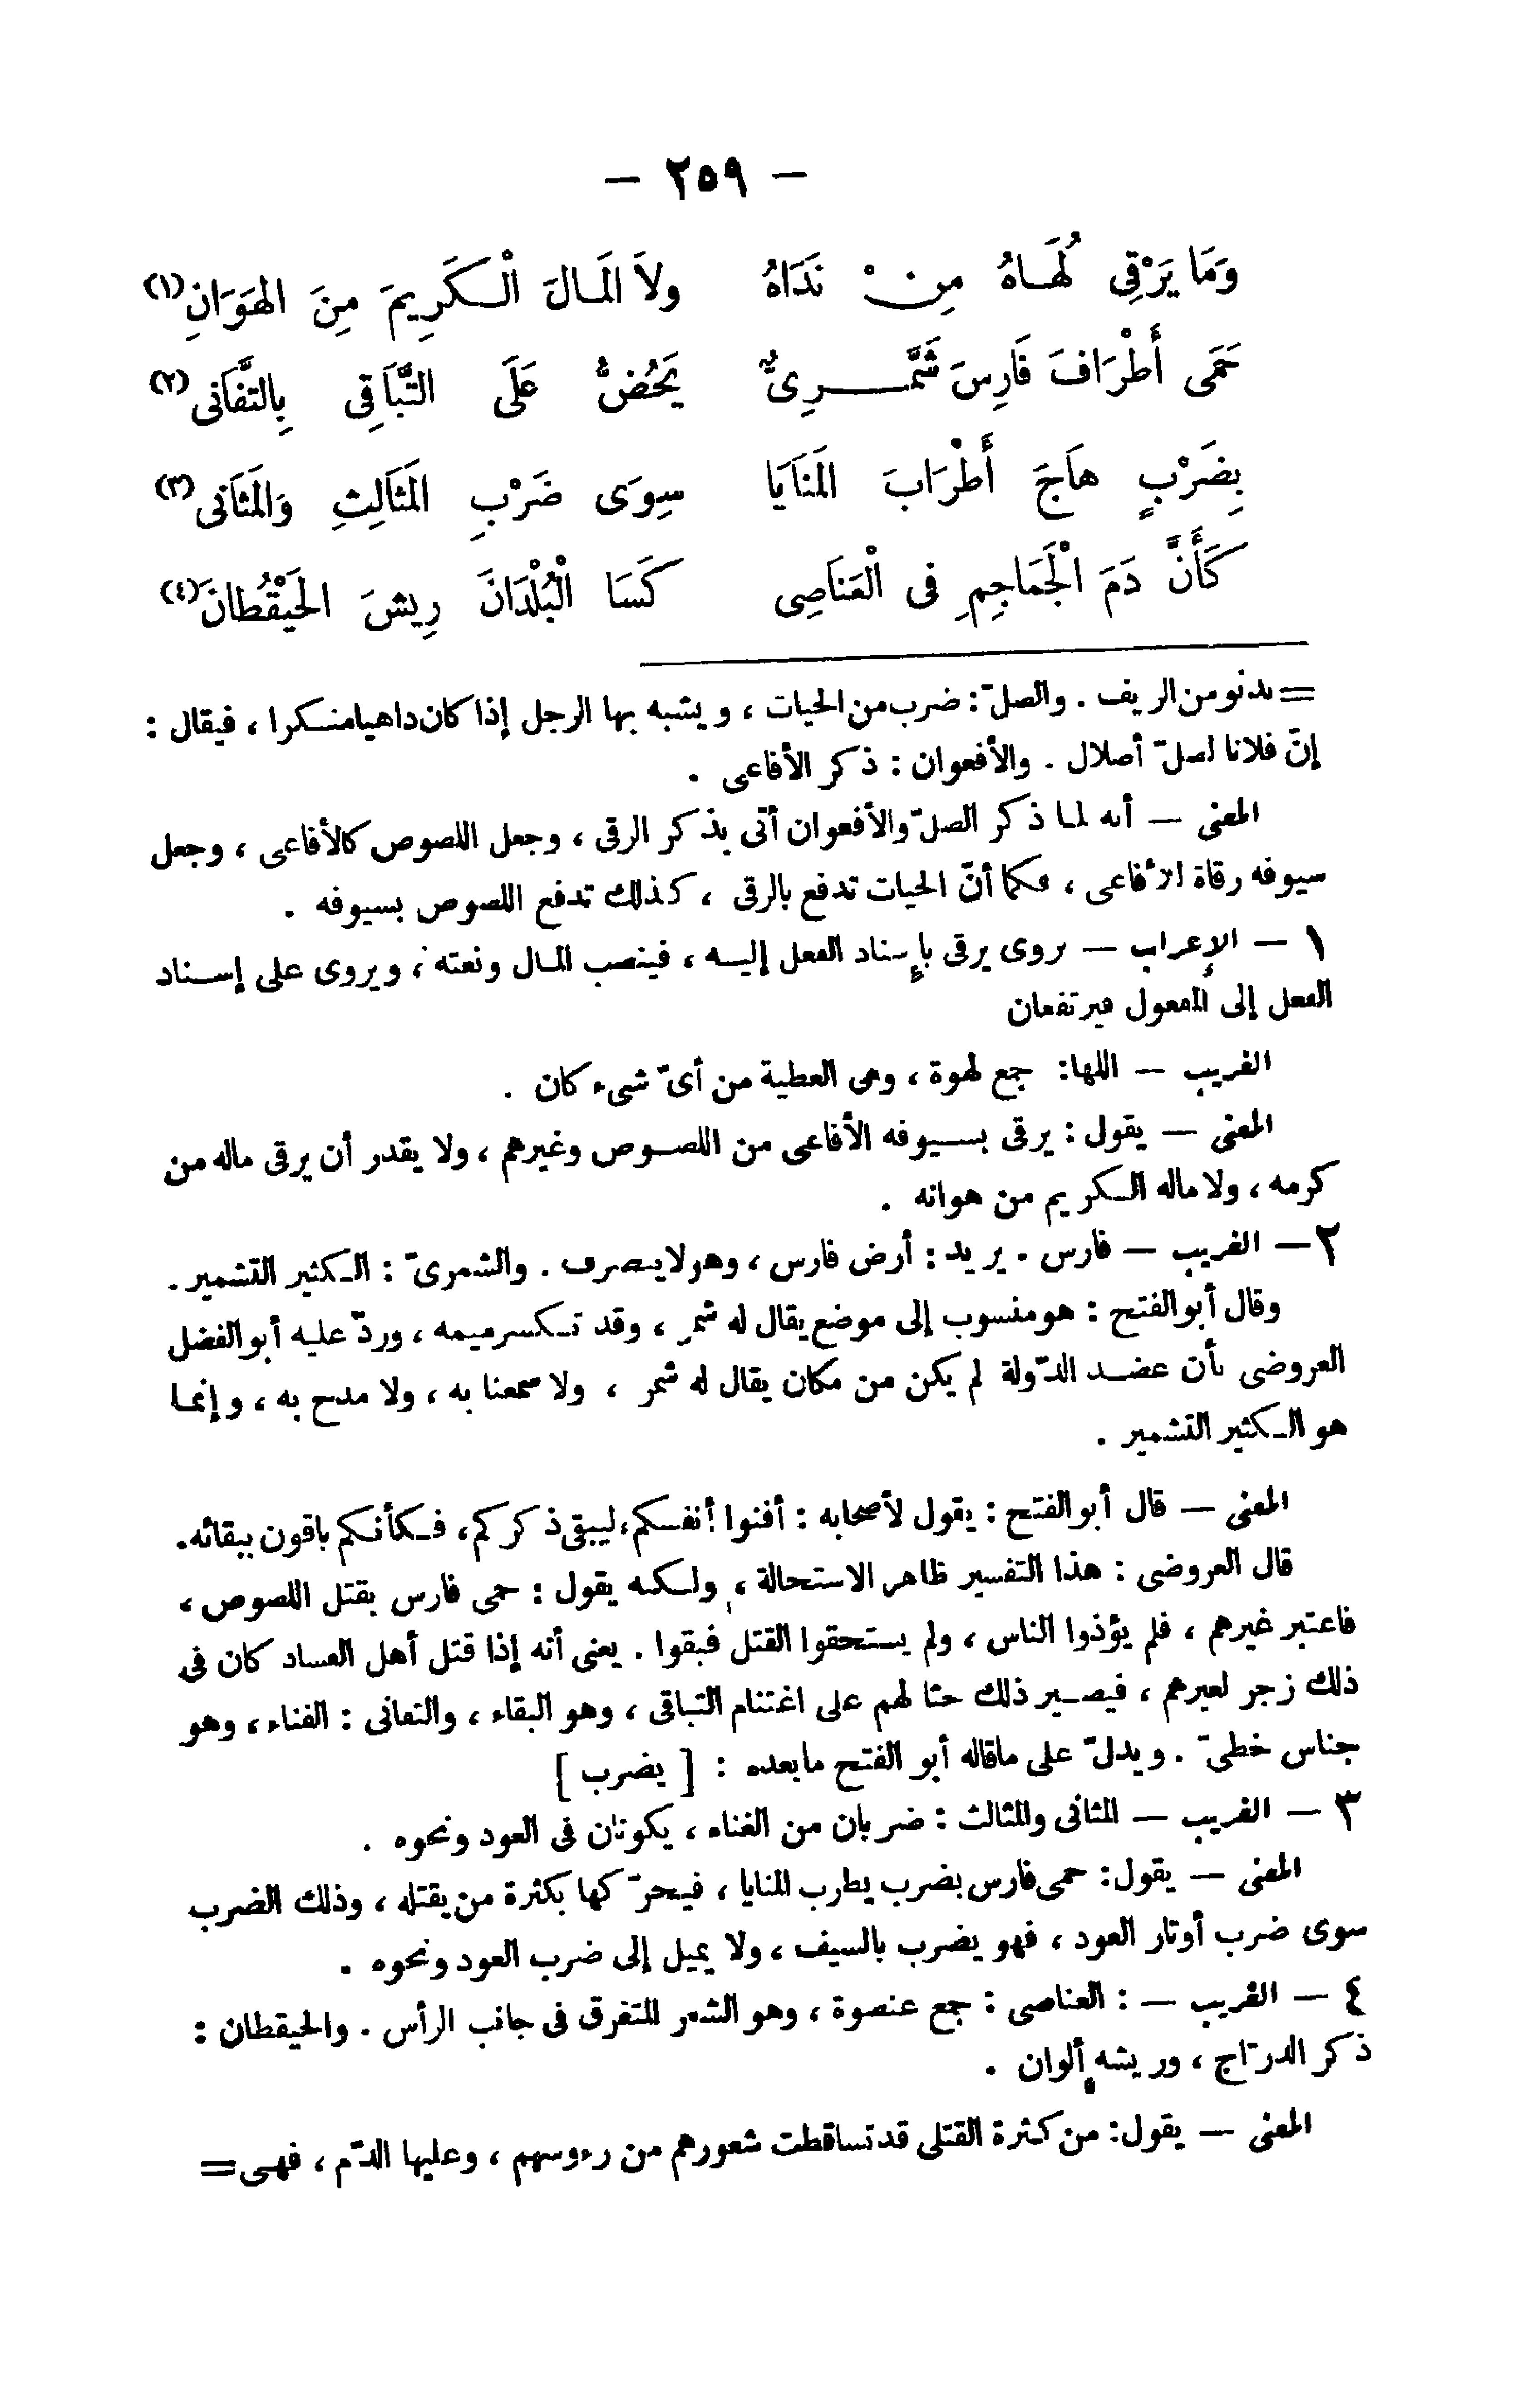 — ٢٥٩ —
وَمَا يَرْقِى لُهَاهُ مِنْ نَدَاهُ ولاَ المَالَ الْكَرِيمَ مِنَ الهَوَانِ(١)
حَمَى أَطْرَافَ فَارِسَ شَمَّرِىٌّ يَحُضُّ عَلَى التَّبَاقِى بِالتَّفَانى(٢)
بِضَرْبٍ هاَجَ أَطْرَابَ المَنَايَا سِوَى ضَرْبِ المَثاَلِثِ وَالمَثاَنى(٣)
كَأَنَّ دَمَ الْجَمَاجِمِ فى الْعَنَاصِى كَسَا الْبُلْدَانَ رِيشَ الحَيْقُطانَ(٤)
= يدنو من الريف . والصلّ : ضرب من الحيات ، ويشبه بها الرجل إذا كان داهيا منكرا ، فيقال :
إنّ فلانا لصلّ أصلال . والأفعوان : ذكر الأفاعى .
المعنى — أنه لما ذكر الصلّ والأفعوان أتى بذكر الرقى ، وجعل اللصوص كالأفاعى ، وجعل
سيوفه رقاة الأفاعى ، فكما أنّ الحيات تدفع بالرقى ، كذلك تدفع اللصوص بسيوفه .
١ — الإعراب — يروى يرقى بإسناد الفعل إليه ، فينصب المال ونعته ، ويروى على إسناد
الفعل إلى المفعول فيرتفعان
الغريب — اللها : جمع لهوة ، وهى العطية من أىّ شىء كان .
المعنى — يقول : يرقى بسيوفه الأفاعى من اللصوص وغيرهم ، ولا يقدر أن يرقى ماله من
كرمه ، ولا ماله الكريم من هوانه .
٢ — الغريب — فارس . يريد : أرض فارس ، وهو لا يصرف . والشمرىّ : الكثير التشمير .
وقال أبو الفتح : هو منسوب إلى موضع يقال له شمر ، وقد تكسر ميمه ، وردّ عليه أبو الفضل
العروضى بأن عضد الدّولة لم يكن من مكان يقال له شمر ، ولا سمعنا به ، ولا مدح به ، وإنما
هو الكثير التشمير .
المعنى — قال أبو الفتح : يقول لأصحابه : أفنوا أنفسكم ، ليبقى ذكركم ، فكأنكم باقون ببقائه .
قال العروضى : هذا التفسير ظاهر الاستحالة ، ولكنه يقول : حمى فارس بقتل اللصوص ،
فاعتبر غيرهم ، فلم يؤذوا الناس ، ولم يستحقوا القتل فبقوا . يعنى أنه إذا قتل أهل الفساد كان فى
ذلك زجر لغيرهم ، فيصير ذلك حثا لهم على اغتنام التباقى ، وهو البقاء ، والتفانى : الفناء ، وهو
جناس خطىّ . ويدلّ على ماقاله أبو الفتح مابعده : [ يضرب ]
٣ — الغريب — المثانى والمثالث : ضربان من الغناء ، يكونان فى العود ونحوه .
المعنى — يقول : حمى فارس بضرب يطرب المنايا ، فيحرّكها بكثرة من يقتله ، وذلك الضرب
سوى ضرب أوتار العود ، فهو يضرب بالسيف ، ولا يميل إلى ضرب العود ونحوه .
٤ — الغريب — : العناصى : جمع عنصوة ، وهو الشعر المتفرق فى جانب الرأس . والحيقطان :
ذكر الدرّاج ، وريشه ألوان .
المعنى — يقول : من كثرة القتلى قد تساقطت شعورهم من رءوسهم ، وعليها الدّم ، فهى =